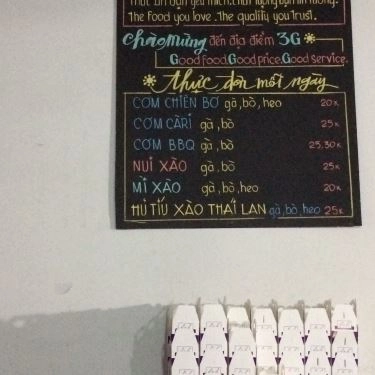 Thức ăn bạn yêu thích. Chất lượng bạn tin tưởng.
The food you love. The quality you trust.
chào mừng đến địa điểm 3G
Good food. Good price. Good service.
thực đơn mỗi ngày
CƠM CHIÊN BƠ gà, bò, heo 20K
CƠM CÀRI gà, bò 25K
CƠM BBQ gà, bò 25,30K
NUI XÀO gà, bò 25K
MÌ XÀO gà, bò, heo 20K
HỦ TIẾU XÀO THÁI LAN gà, bò, heo 25K